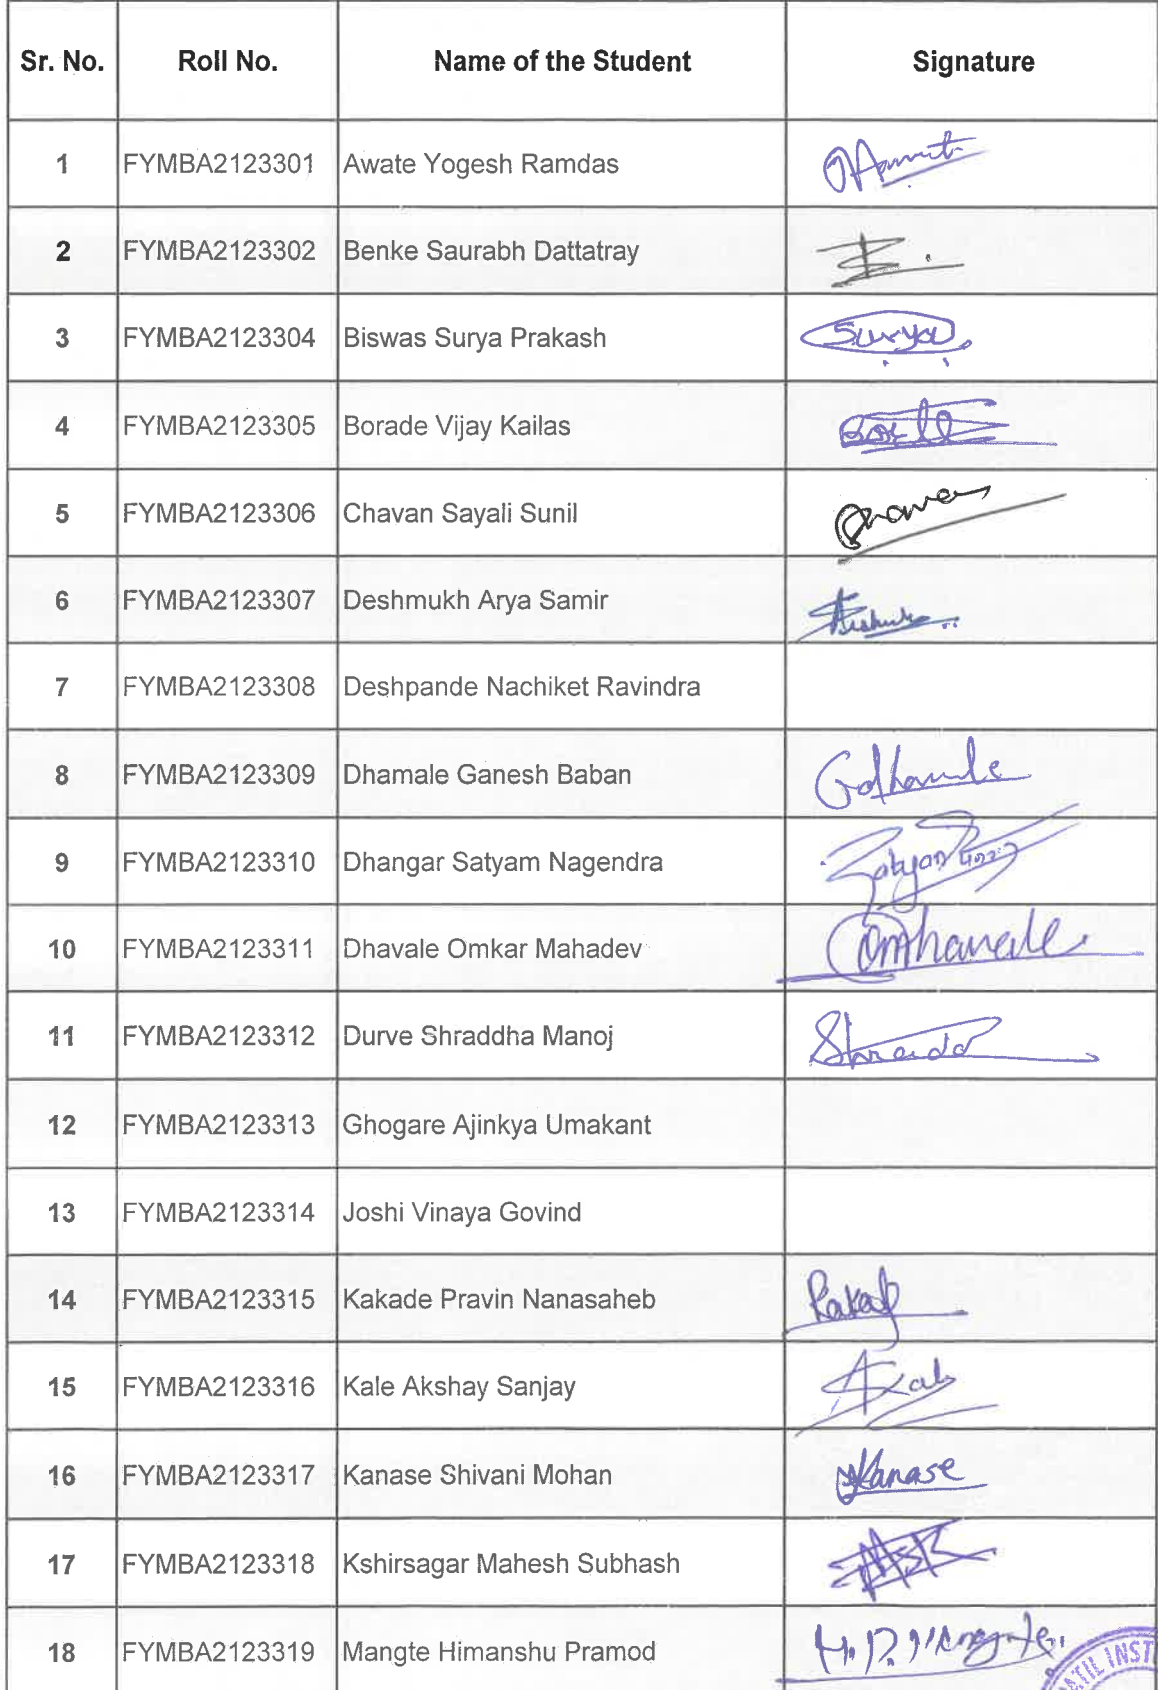 Sr. No. Roll No. Name of the Student Signature
1 FYMBA2123301 Awate Yogesh Ramdas
2 FYMBA2123302 Benke Saurabh Dattatray
3 FYMBA2123304 Biswas Surya Prakash Surya
4 FYMBA2123305 Borade Vijay Kailas
5 FYMBA2123306 Chavan Sayali Sunil
6 FYMBA2123307 Deshmukh Arya Samir
7 FYMBA2123308 Deshpande Nachiket Ravindra
8 FYMBA2123309 Dhamale Ganesh Baban
9 FYMBA2123310 Dhangar Satyam Nagendra
10 FYMBA2123311 Dhavale Omkar Mahadev
11 FYMBA2123312 Durve Shraddha Manoj
12 FYMBA2123313 Ghogare Ajinkya Umakant
13 FYMBA2123314 Joshi Vinaya Govind
14 FYMBA2123315 Kakade Pravin Nanasaheb
15 FYMBA2123316 Kale Akshay Sanjay
16 FYMBA2123317 Kanase Shivani Mohan Kanase
17 FYMBA2123318 Kshirsagar Mahesh Subhash
18 FYMBA2123319 Mangte Himanshu Pramod
ATIL INST